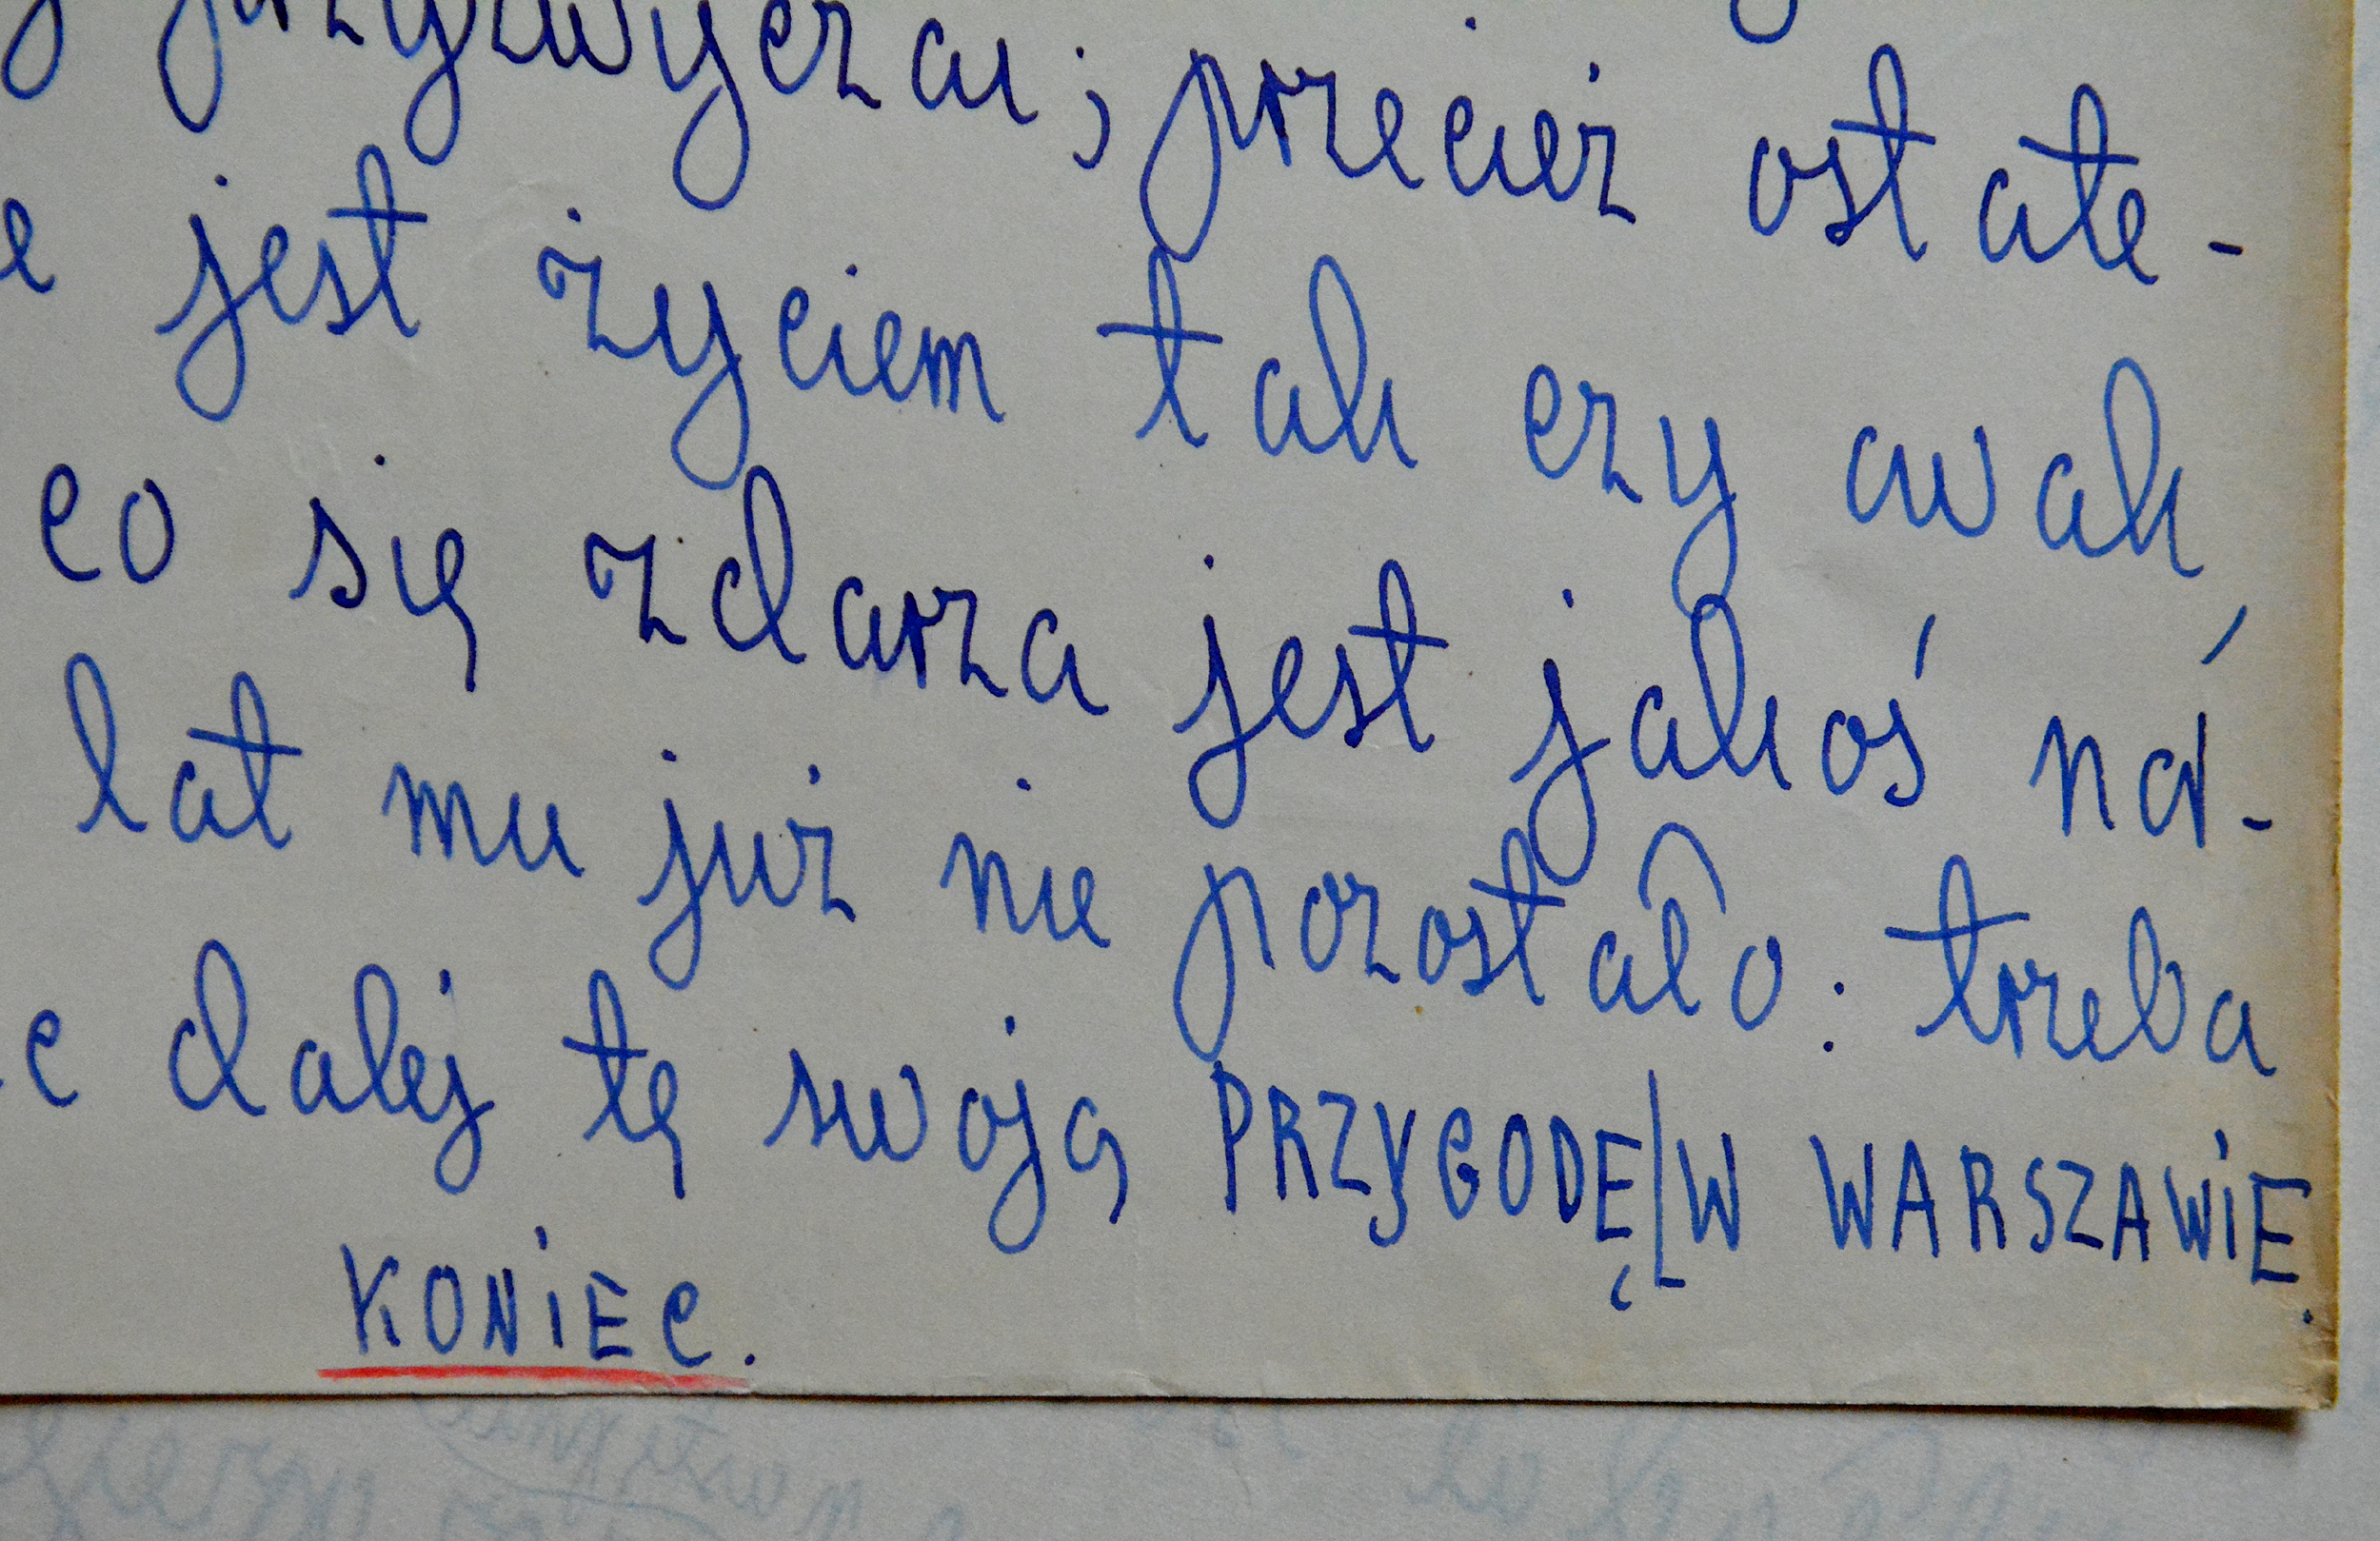 przyzwyczai; przecież ostate-
jest życiem tak czy owak,
co się zdarza jest jakoś na-
lat mu już nie pozostało: trzeba
dalej tę swoją PRZYGODĘ W WARSZAWIE.
KONIEC.